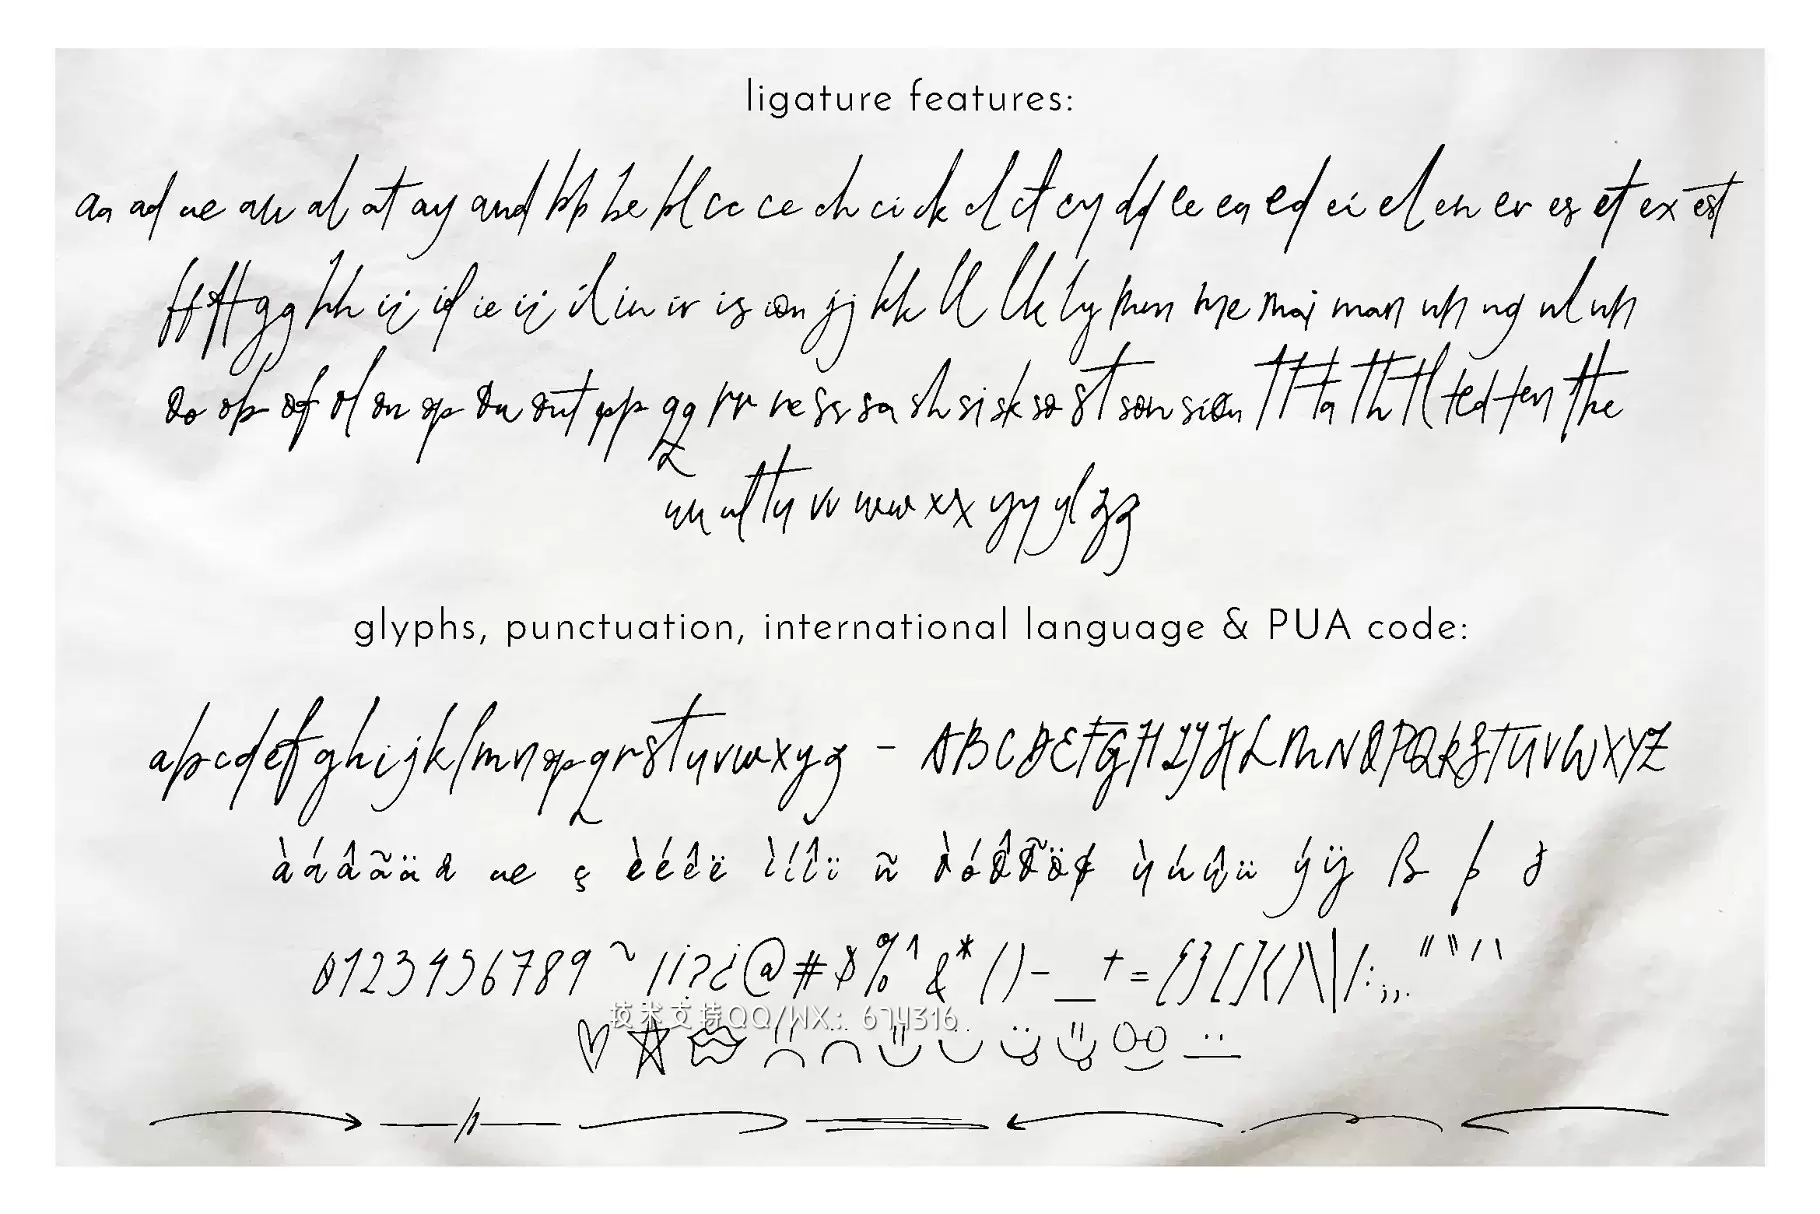 ligature features:
aa ad ae au al at ay and bb be bl cc ce ch ci ck cl ct cy dd ee ea ed ei el en er es et ex est
ff fft gg hh ii id ie ij il in ir is ion jj kk ll lk ly mm me mai man nn ng nl nh
oo ob of ol on op ou out pp qq rr re ss sa sh si sk so st son sion tt ta th tl ted ten the
uu ul tu vv ww xx yy yl zz
glyphs, punctuation, international language & PUA code:
abcdefghijklmnopqrstuvwxyz - ABCDEFGHIJKLMNOPQRSTUVWXYZ
àáâãäå æ ç èéêë ìíîï ñ òóôõöø ùúûü ýÿ ß þ
0123456789 ~ !¡?¿@#$%^&*()-_+={}[]<>\|/:;,."“‘'
技术支持QQ/WX: 674316